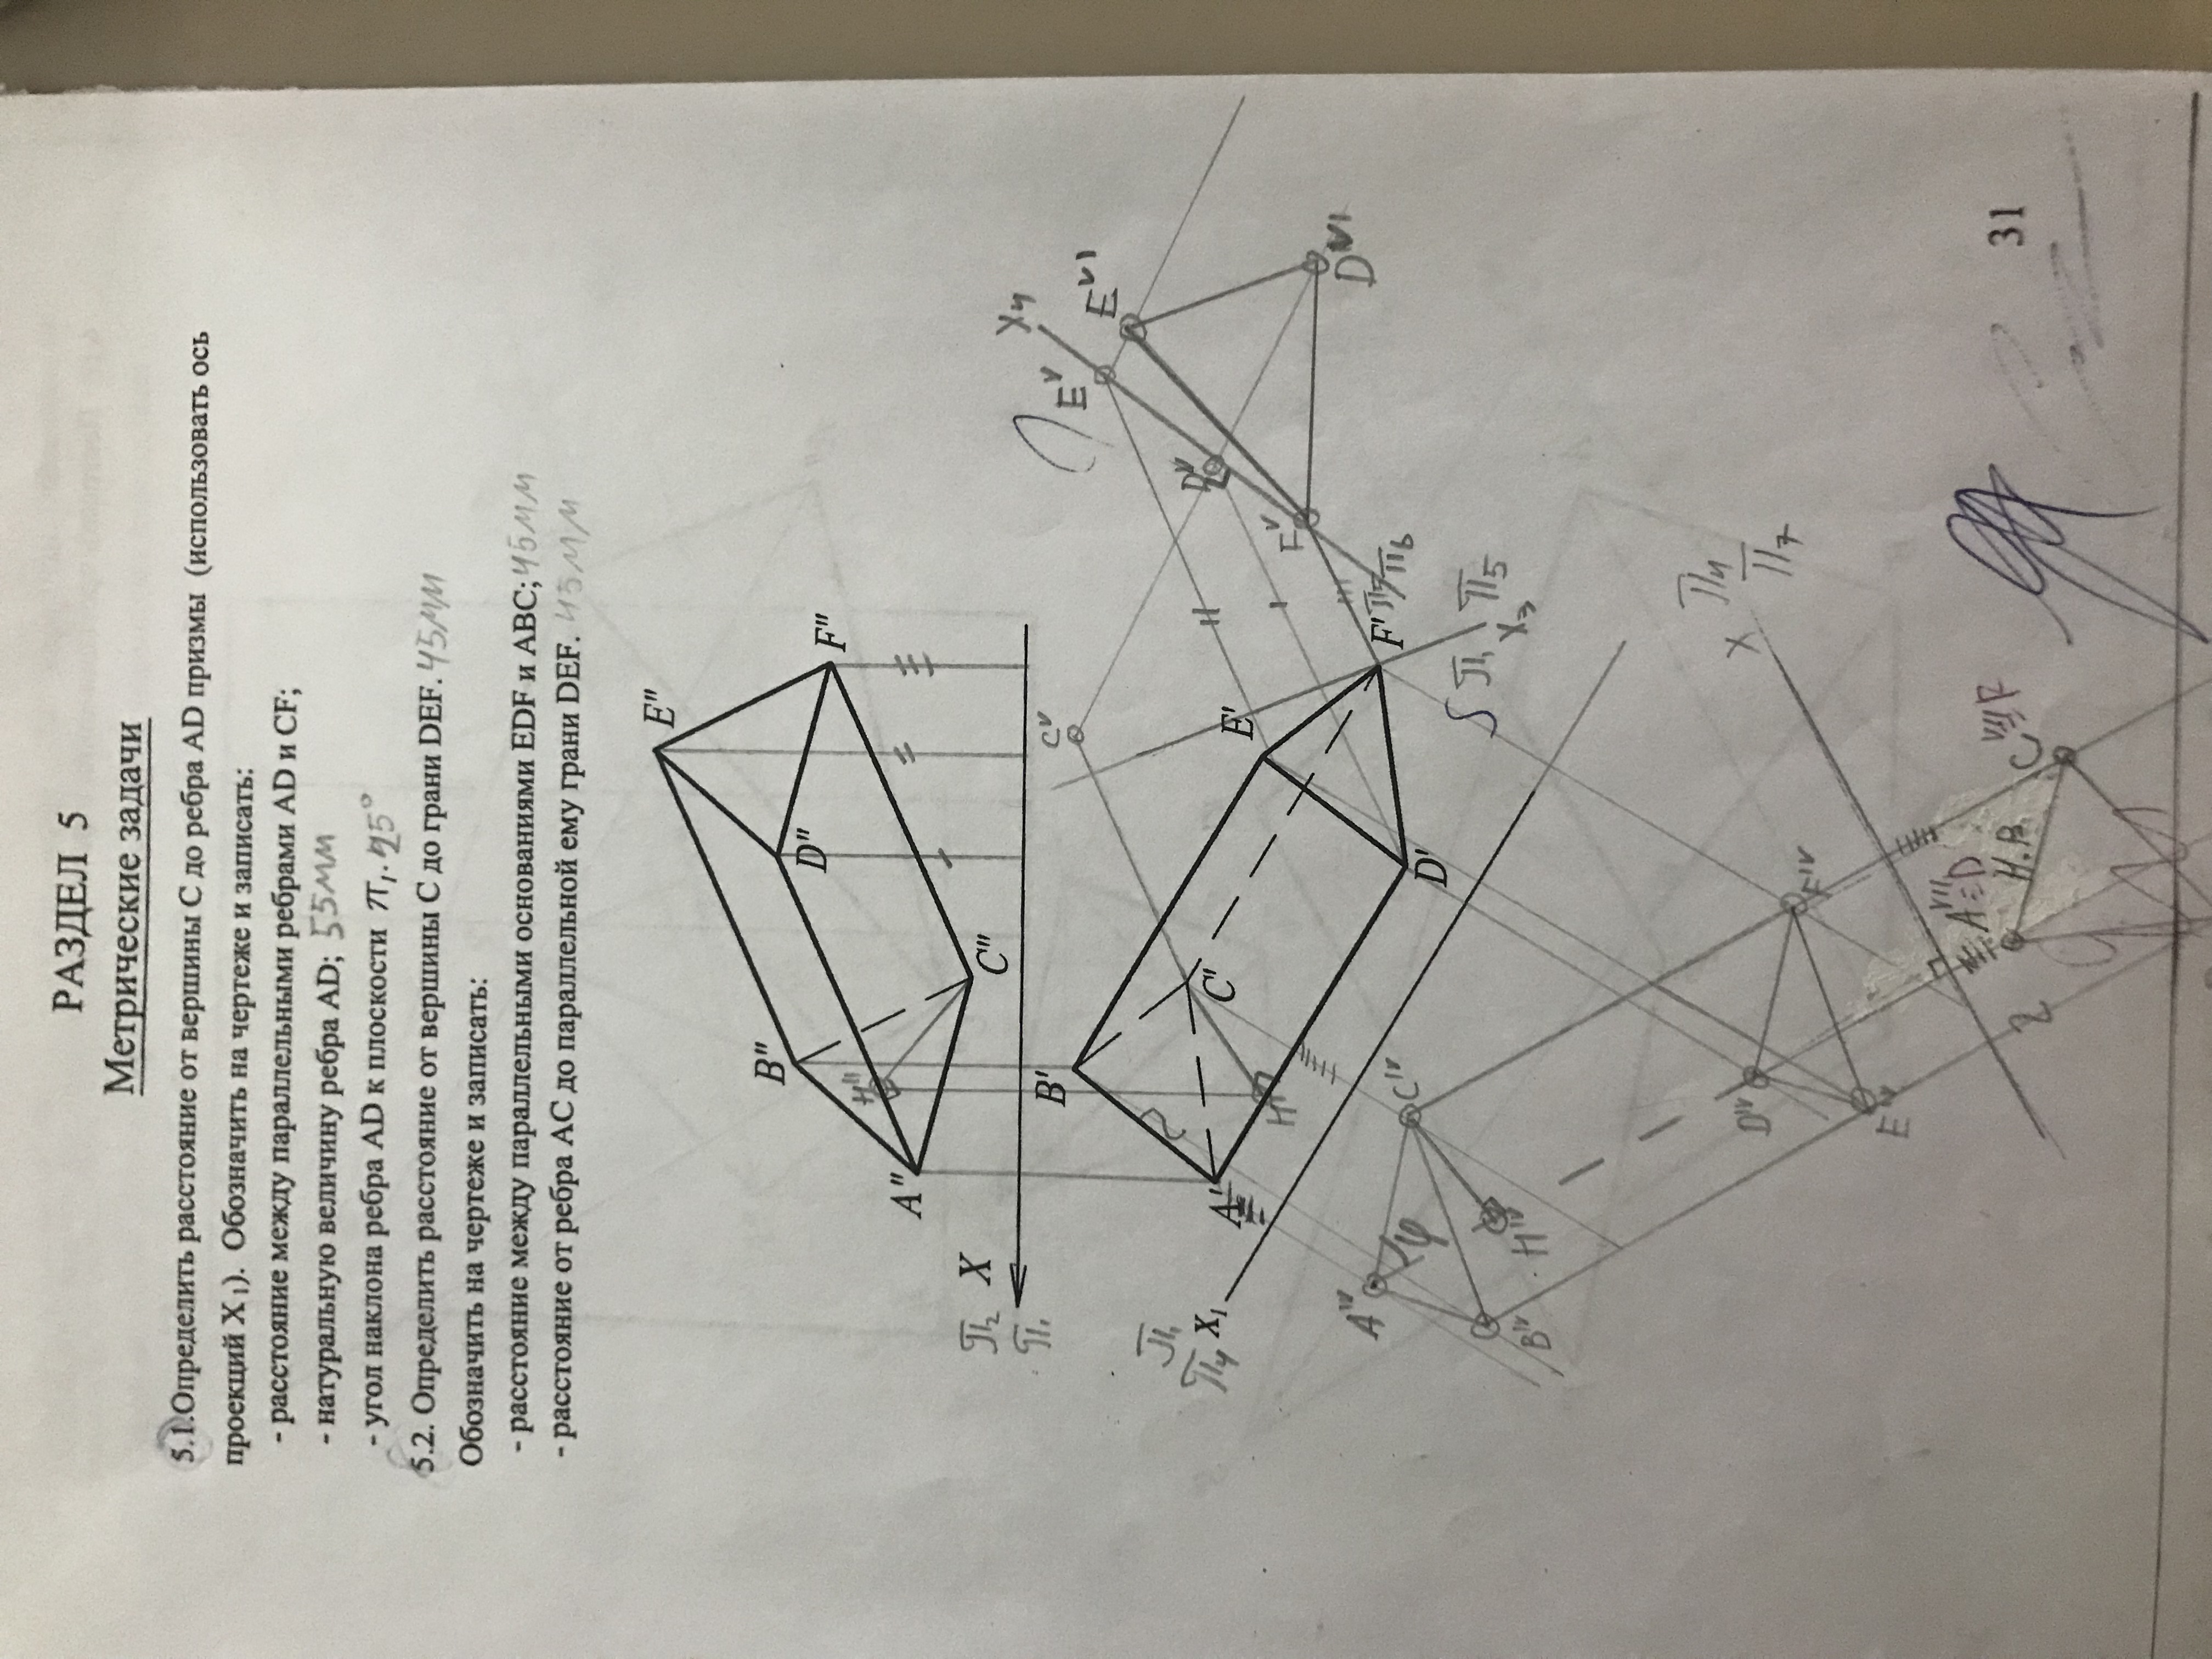 РАЗДЕЛ 5
Метрические задачи
5.1.Определить расстояние от вершины С до ребра AD призмы (использовать ось
проекций X 1). Обозначить на чертеже и записать:
- расстояние между параллельными ребрами AD и CF;
- натуральную величину ребра AD; 55мм
- угол наклона ребра AD к плоскости π1. 45°
5.2. Определить расстояние от вершины С до грани DEF. 45мм
Обозначить на чертеже и записать:
- расстояние между параллельными основаниями EDF и ABC; 45мм
- расстояние от ребра AC до параллельной ему грани DEF. 45мм
E"
B"
D"
F"
H"
A"
C"
π2 X
π1
B'
C^V
X4
E^V
E^VI
π1
π4 X1
A'
C'
D^V
E'
H'
F^V
D^VI
A^IV
φ
C^IV
F' π5/π6
D'
B^IV
H^IV
π1 π5
X3
D^IV
F^IV
X π4
π7
E^IV
A^VII≡D
Н.В.
C^VII≡F
31